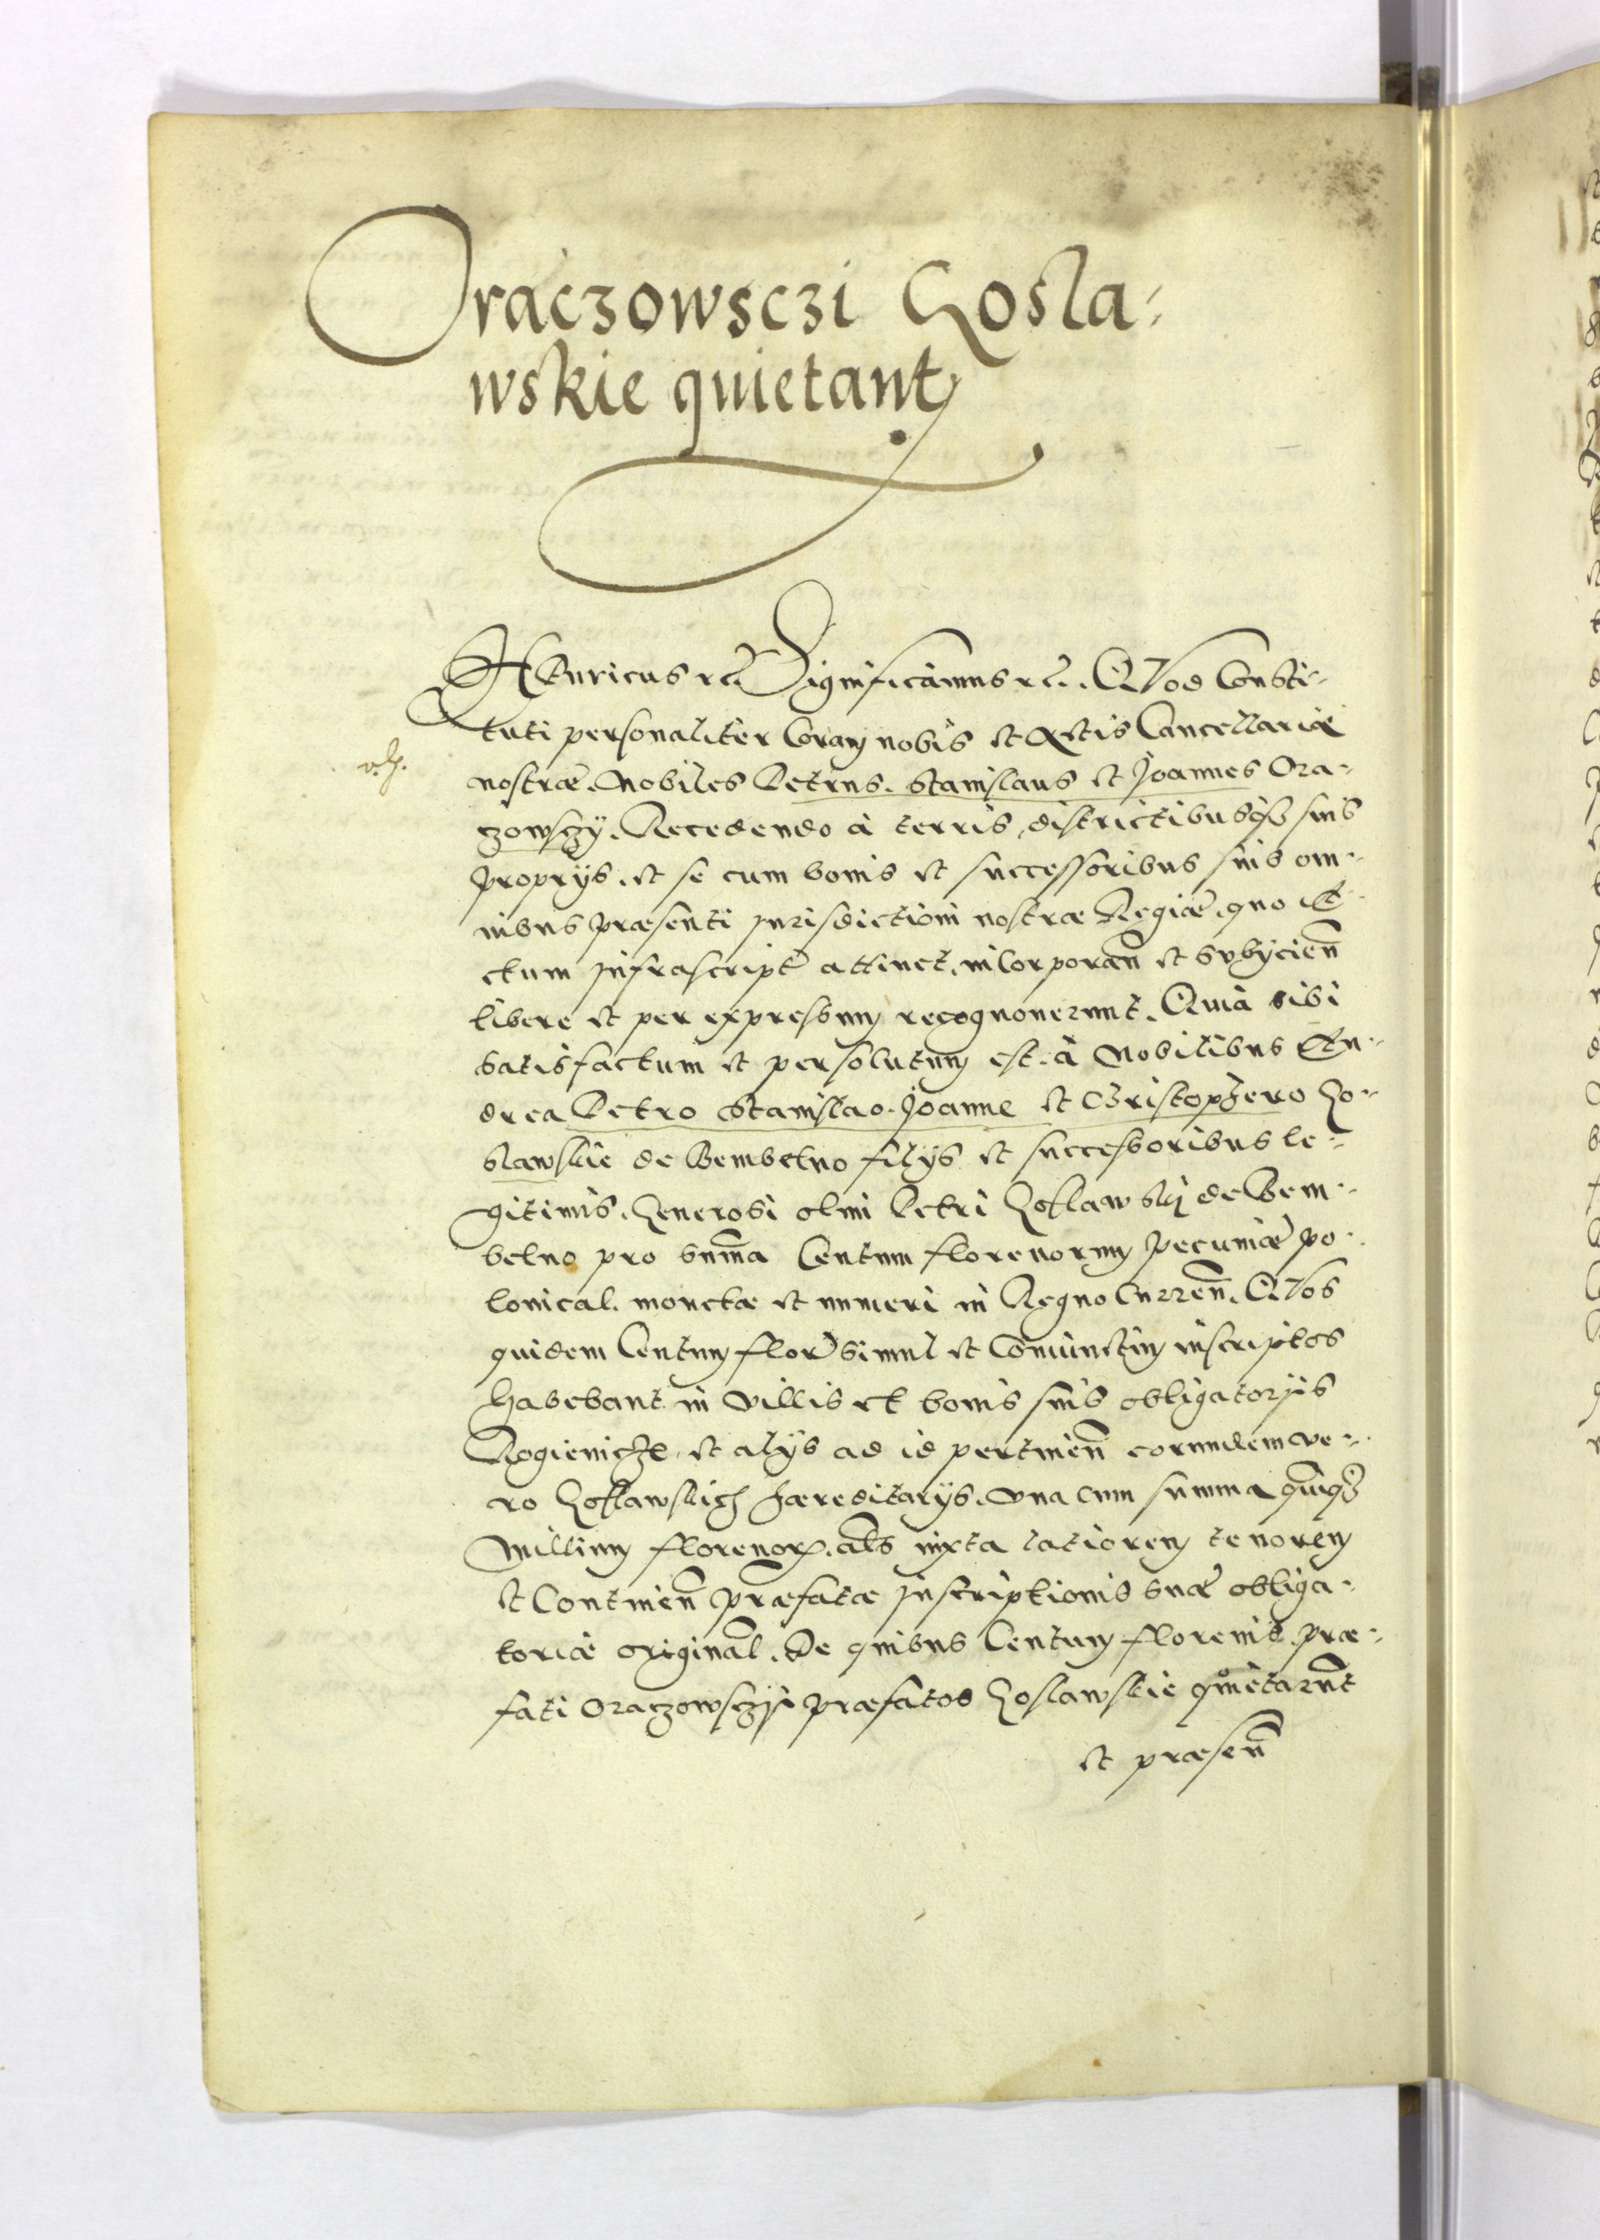 Oraczowsczi Gosla-
wskie quietant
Henricus etc. Significamus etc. Quod Consti-
tuti personaliter Coram nobis et Actis Cancellariæ
nostræ. Nobiles Petrus. Stanislaus et Joannes Ora-
czowsczÿ. Recedendo à terris, districtibusq3 suis
proprÿs. et se cum bonis et successoribus suis om-
nibus præsenti Jurisdictioni nostræ Regiæ. quo A-
ctum Jnfrascript attinet. inCorporan et subÿcien
libere et per expressum recognouerunt. Quia sibi
satisfactum et persolutum est. à Nobilibus An-
drea Petro Stanislao. Joanne et Christophero Go-
slawskie de Bembelno filÿs et successoribus le-
gitimis. Generosi olim Petri Goslawski de Bem-
belno pro summa Centum florenorum pecuniæ po-
lonical. monetæ et numeri in Regno Curren. Quos
quidem Centum flor simul et Coniunctim inscriptos
habebant in villis et bonis suis obligatorÿs
Rogienicze et alÿs ad id pertinen eorundem ve-
ro Goslawskich hæreditarÿs. vna cum summa quinq3
Millium florenor. als iuxta latiorem tenorem
et Continen præfatæ Jnscriptionis suæ obliga-
toriæ original. De quibus Centum florenis præ-
fati Oraczowsczÿ præfatos Goslawskie quietarunt
et præsen